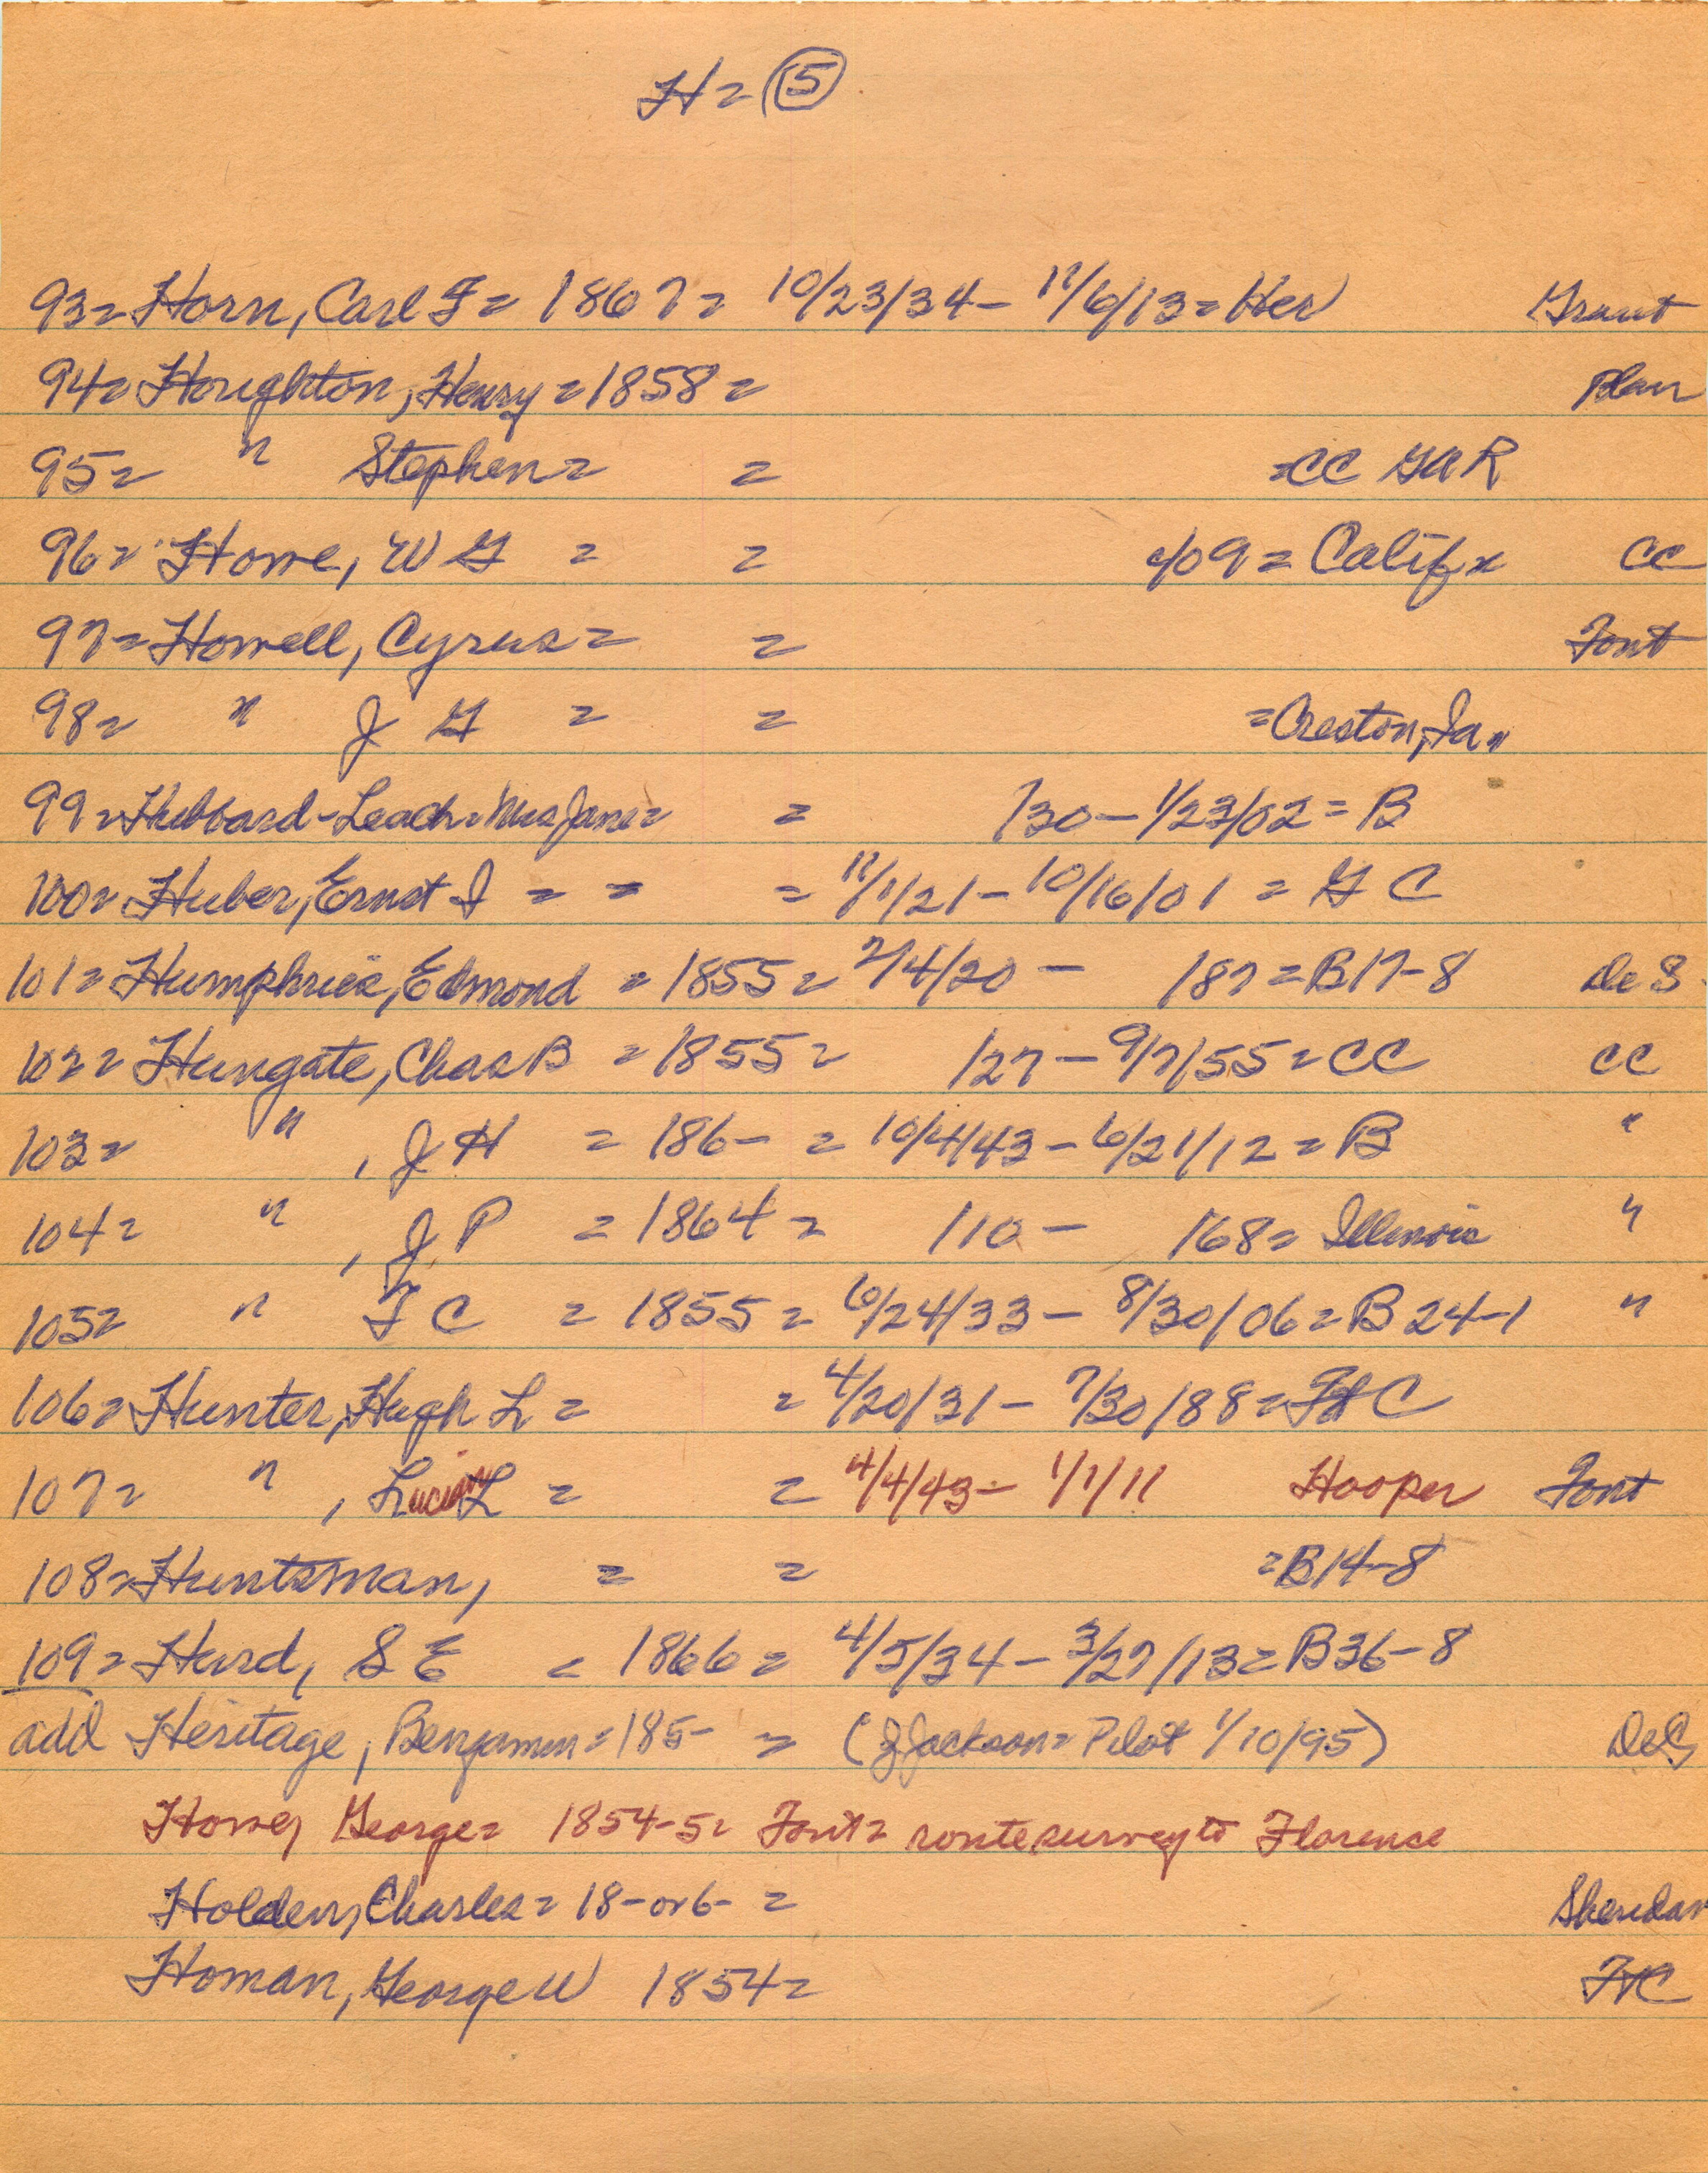 H = (5)
93 = Horn, Carl F = 1867 = 10/23/34 - 11/6/13 = Her Grant
94 = Houghton, Henry = 1858 = Blair
95 = " Stephen = = = CC GAR
96 = Howe, W G = = 4/09 = Calif x CC
97 = Howell, Cyrus = = Font
98 = " J G = = = Creston, Ia "
99 = Hubbard - Leach = Mrs Jane = = /30 - 1/23/02 = B
100 = Huber, Ernst I = = = 11/1/21 - 10/16/01 = G C
101 = Humphries, Edmond = 1855 = 2/4/20 - /87 = B17-8 De S
102 = Hungate, Chas B = 1855 = /27 - 9/7/55 = CC CC
103 = " , J H = 186- = 10/4/43 - 6/21/12 = B "
104 = " , J P = 1864 = /10 - /68 = Illinois "
105 = " T C = 1855 = 6/24/33 - 8/30/06 = B 24-1 "
106 = Hunter, Hugh L = = 4/20/31 - 7/30/88 = Ft C
107 = " , Lucian L = = 4/4/43 - 1/1/11 Hooper Font
108 = Huntsman, = = = B14-8
109 = Hurd, S E = 1866 = 4/5/34 - 3/27/13 = B36-8
add Heritage, Benjamin = 185- = (J Jackson = Pilot 1/10/95) DeS
Horne, George = 1854-5 = Font = route survey to Florence
Holden, Charles = 18-or6- = Sheridan
Homan, George W 1854 = Ft C